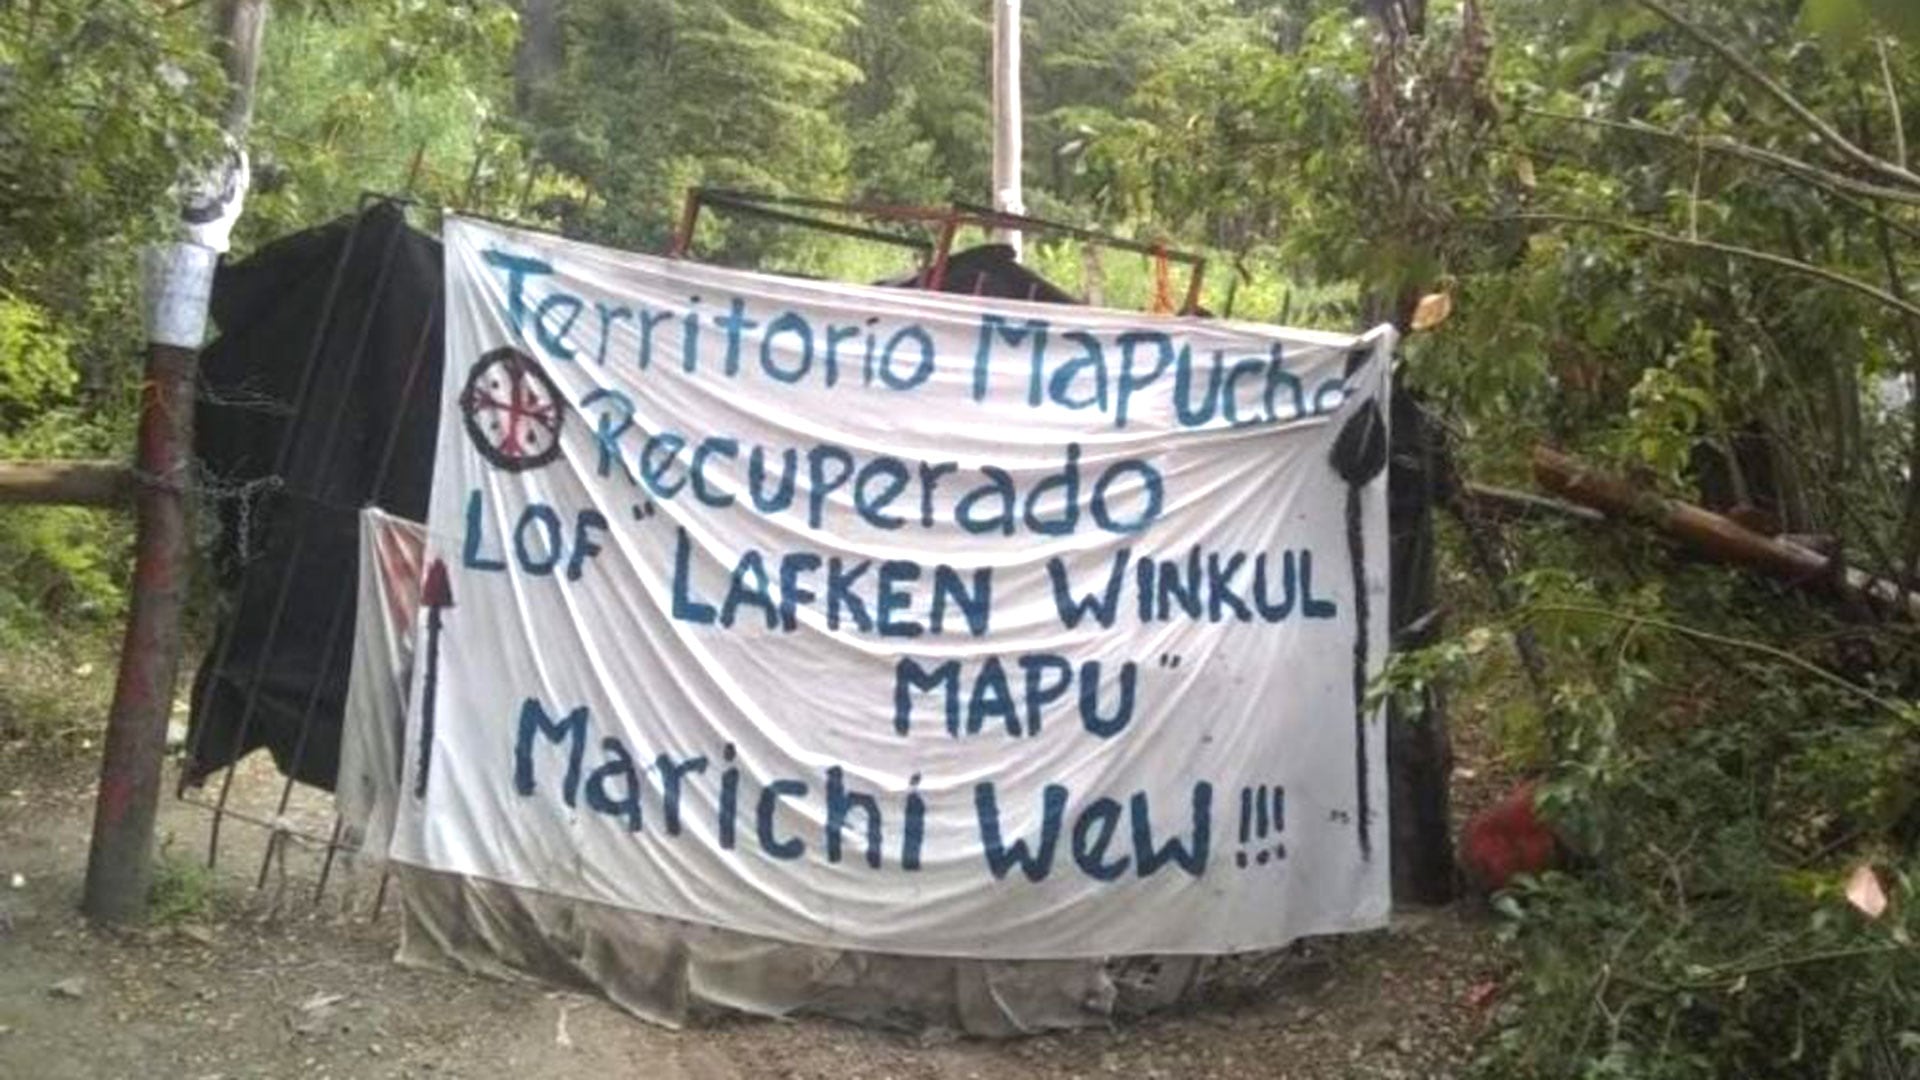 Territorio Mapuche
Recuperado
LOF "LAFKEN WINKUL
MAPU"
Marichi WeW!!!